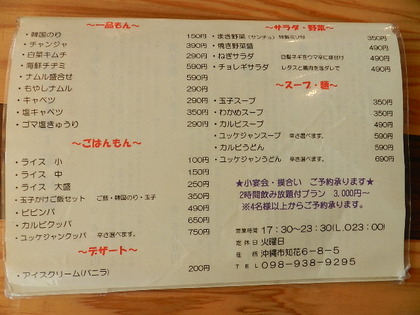 ～一品もん～
・韓国のり 150円
・チャンジャ 390円
・白菜キムチ 390円
・海鮮チヂミ
・ナムル盛合せ
・もやしナムル
・キャベツ
・塩キャベツ
・ゴマ塩きゅうり
～ごはんもん～
・ライス 小 100円
・ライス 中 150円
・ライス 大盛 250円
・玉子かけご飯セット ご飯・韓国のり・玉子 350円
・ビビンバ
・カルビクッパ 650円
・ユッケジャンクッパ 辛さ選べます。 750円
～デザート～
・アイスクリーム(バニラ) 200円
～サラダ・野菜～
・まき野菜 (サンチュ) 350円
・焼き野菜盛 490円
・ねぎサラダ 490円
・チョレギサラダ 490円
～スープ・麺～
・玉子スープ 350円
・わかめスープ 350円
・カルビスープ
・ユッケジャンスープ 辛さ選べます。
・カルビうどん
・ユッケジャンうどん 辛さ選べます。 690円
★小宴会・模合い ご予約承ります★
2時間飲み放題付プラン 3,000円～
※4名様以上からご予約承ります。
営業時間 17:30～23:30(L.O23:00)
定休日 火曜日
住所 沖縄市知花6-8-5
TEL 098-938-9295